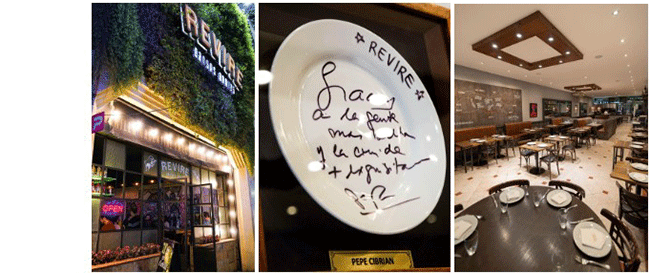 REVIRE
REVIRE
OPEN
REVIRE
Gracias
a la gente
mas linda
y la comida
+ exquisita
PEPE CIBRIAN